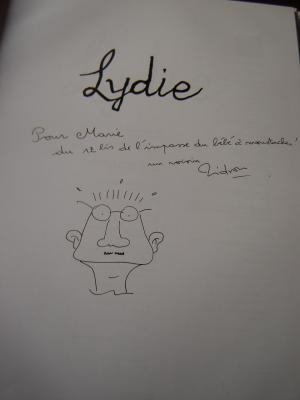 Lydie
Pour Marie
du 12 bis de l'impasse du bébé à moustaches !
un voisin
Zidrou